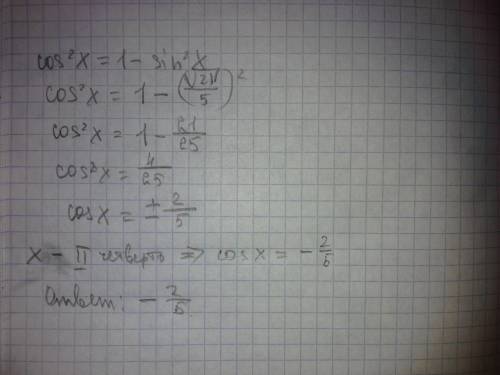 cos²x = 1 - sin²x
cos²x = 1 - (√21/5)²
cos²x = 1 - 21/25
cos²x = 4/25
cosx = ± 2/5
x - II четверть => cosx = - 2/5
Ответ: - 2/5